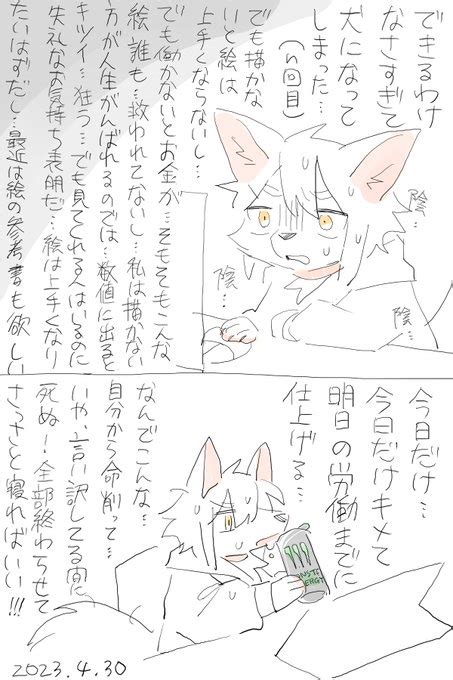 できるわけ
なさすぎて
犬になって
しまった…
(n回目)
でも描かな
いと絵は
上手くならないし…
でも働かないとお金が…そもそもこんな
絵誰も…救われてないし…私は描かない
方が人生がんばれるのでは…数値に出ると
キツイ…狂う…でも見てくれる人はいるのに
失礼なお気持ち表明だ…絵は上手くなり
たいはずだし…最近は絵の参考書も欲しい
陰…
陰…
陰…
陰…
今日だけ…
今日だけキメて
明日の労働までに
仕上げる…
なんでこんな…
自分から命削って…
いや、言い訳してる間に
死ぬー!全部終わらせて
さっさと寝ればいい!!!
MONSTER
ENERGY
2023.4.30